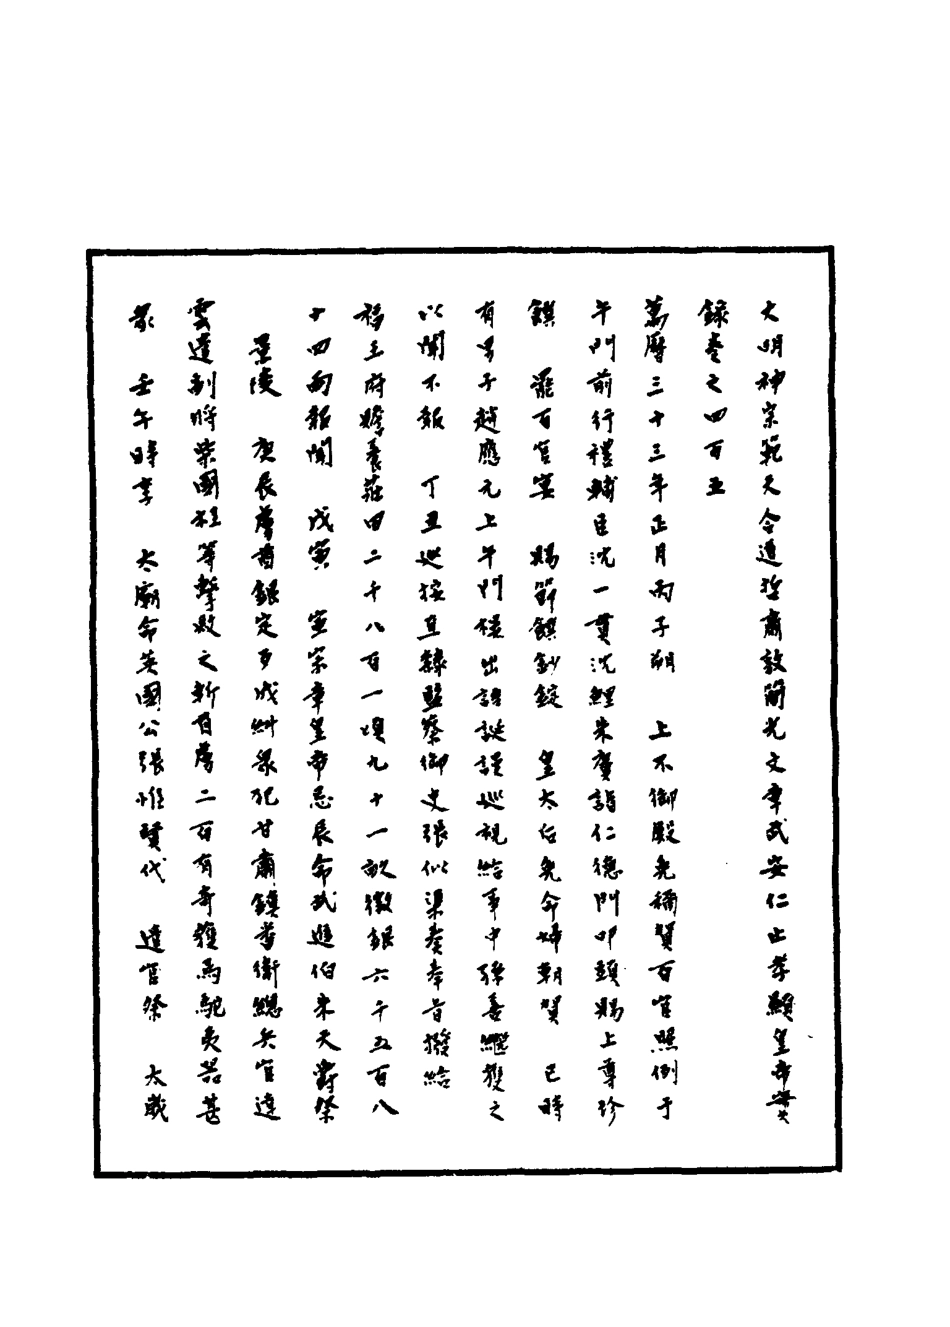 大明神宗範天合道哲肅敦簡光文章武安仁止孝顯皇帝實
錄卷之四百五
萬曆三十三年正月丙子朔 上不御殿免稱賀百官照例于
午門前行禮輔臣沈一貫沈鯉朱賡詣仁德門叩頭賜上尊珍
饌 罷百官宴 賜節饌鈔錠 皇太后免命婦朝賀 巳時
有男子趙應元上午門樓出語謎謹巡視給事中孫善繼獲之
以聞不報 丁丑巡按直隸監察御史張似渠奏奉旨撥給
福王府贍養莊田二千八百一頃九十一畝徵銀六千五百八
十四兩報聞 戊寅 宣宗章皇帝忌辰命武進伯朱天爵祭
景陵 庚辰虜酋銀定歹成糾衆犯甘肅鎮番衛總兵官達
雲遣副將柴國柱等擊敗之斬首虜二百有奇獲馬駝夷器甚
衆 壬午時享 太廟命英國公張惟賢代 遣官祭 太歲